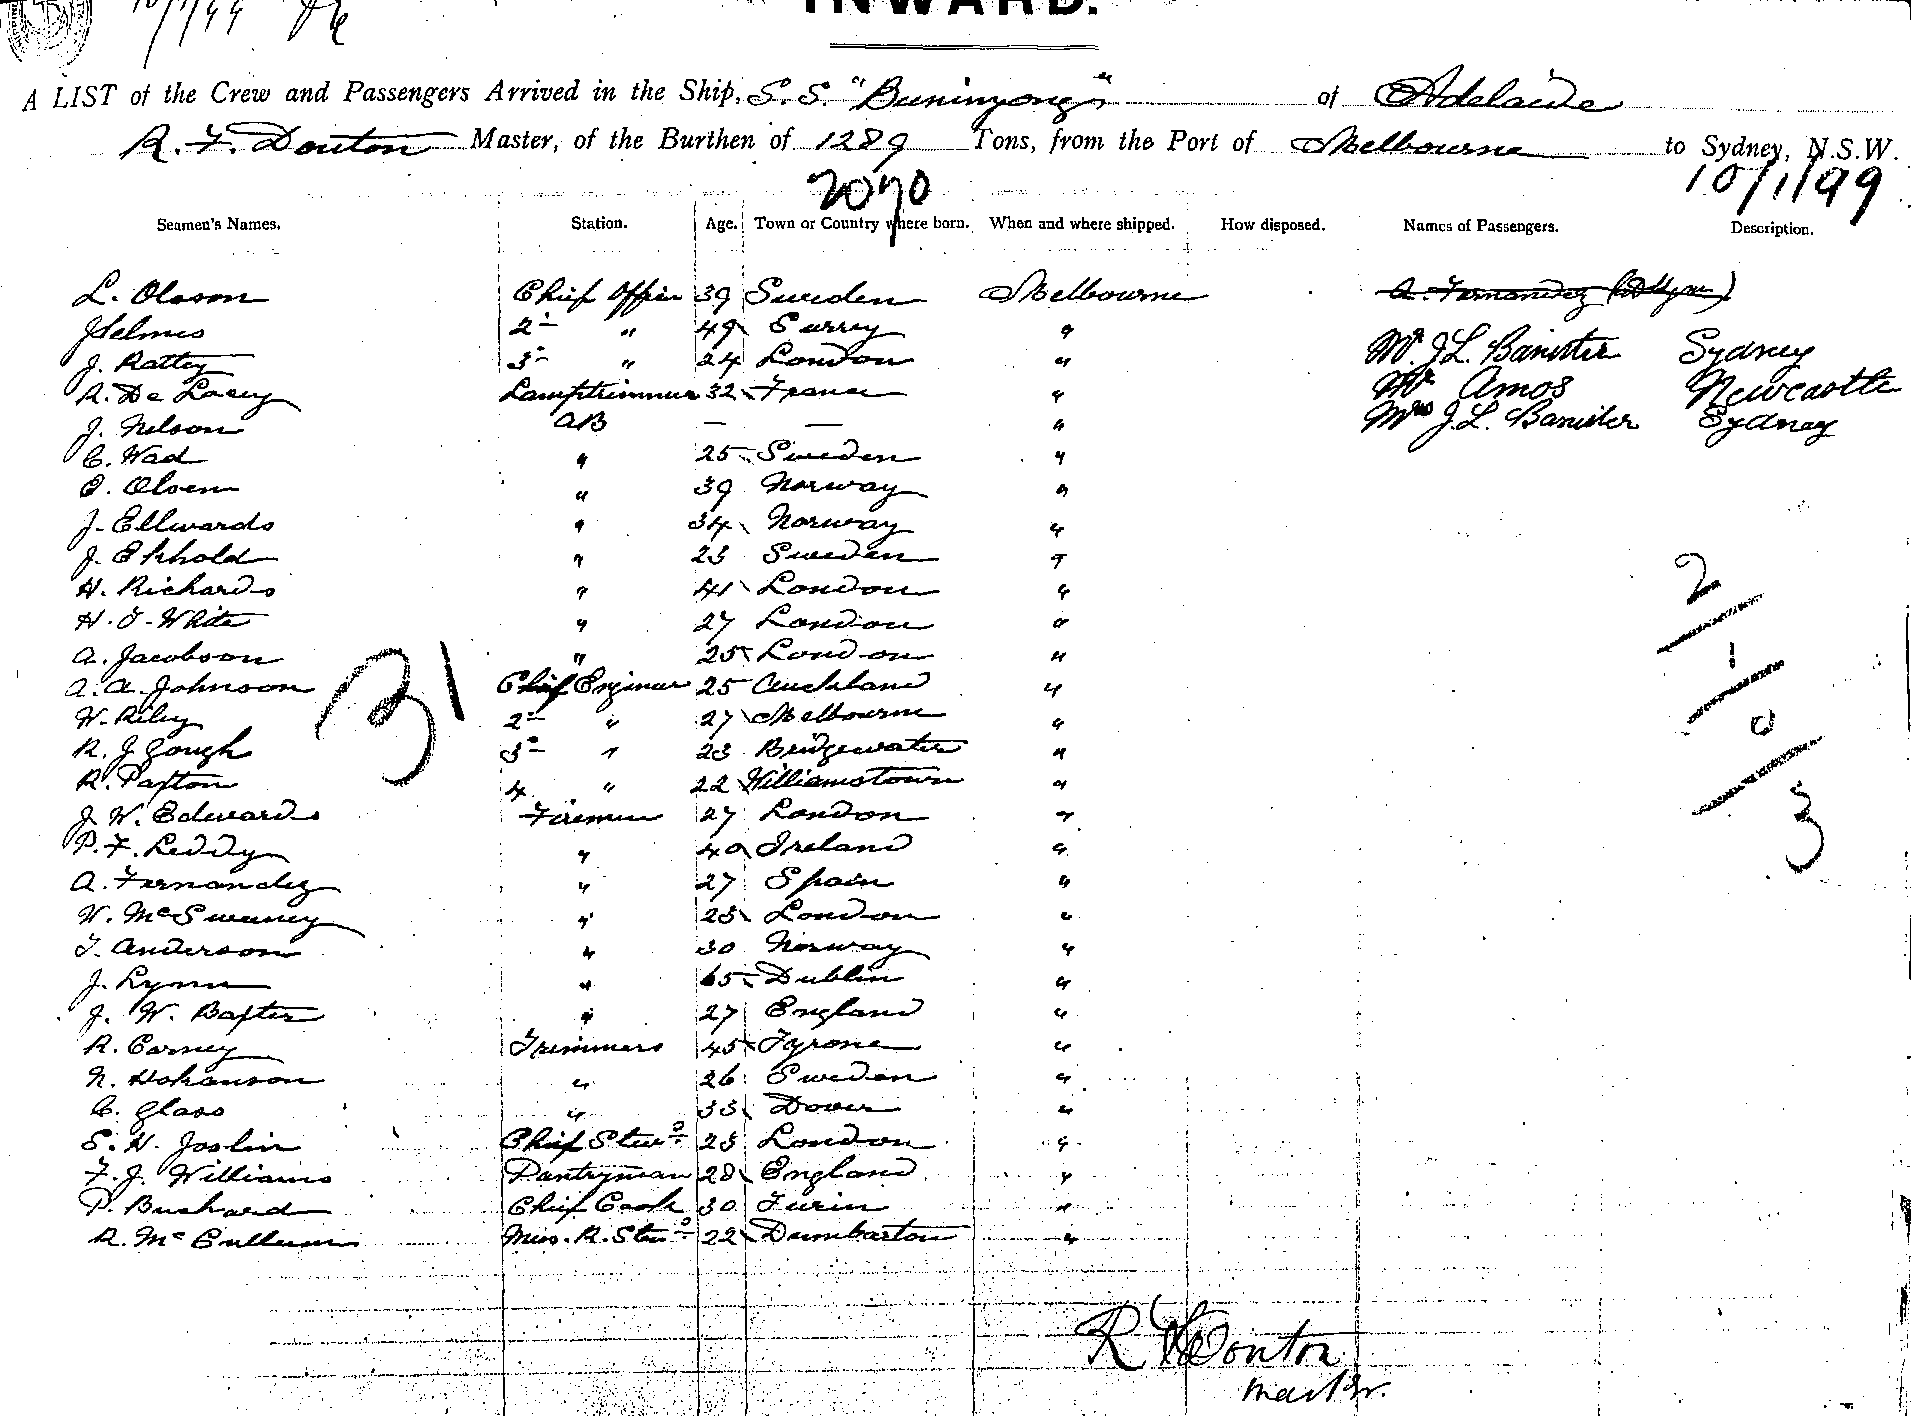 10/1/99
INWARD.
A LIST of the Crew and Passengers Arrived in the Ship, S.S. "Buninyong" of Adelaide
R. F. Donton Master, of the Burthen of 1289 Tons, from the Port of Melbourne to Sydney, N.S.W.
2070 10/1/99
Seamen's Names. Station. Age. Town or Country where born. When and where shipped. How disposed. Names of Passengers. Description.
L. Olsson Chief Officer 39 Sweden Melbourne A. Fernandez
J Selmes 2nd " 49 Surrey "
J. Rattey 3rd " 24 London " Mr. J L. Banister Sydney
R. De Lacey Lamptrimmer 32 France " Mr Amos Newcastle
J. Nelson AB — — " Mrs J. L. Banister Sydney
C. Wad " 25 Sweden "
O. Olsen " 39 Norway "
J. Ellwards " 34 Norway "
J. Ekhold " 23 Sweden "
H. Richards " 41 London "
H. J. White " 27 London "
A. Jacobson " 25 London "
A. A. Johnson Chief Engineer 25 Auckland "
W. Riley 2nd " 27 Melbourne "
R. J Gough 3rd " 23 Bridgewater "
R. Paxton 4 " 22 Williamstown "
J. W. Edwards Firemen 27 London "
P. F. Leddy " 40 Ireland "
A. Fernandez " 27 Spain "
W. McSweeney " 23 London "
T. Anderson " 30 Norway "
J. Lynn " 65 Dublin "
J. W. Baxter " 27 England "
R. Carney Trimmers 45 Tyrone "
N. Hokanson " 26 Sweden "
C. Glass " 33 Dover "
S. H. Joslin Chief Stewd 23 London "
F. J. Williams Pantryman 28 England "
P. Bushard Chief Cook 30 Turin "
R. McCullum Miss. R. Stewd 22 Dumbarton "
31
2
1
0
3
R F Donton
Master.